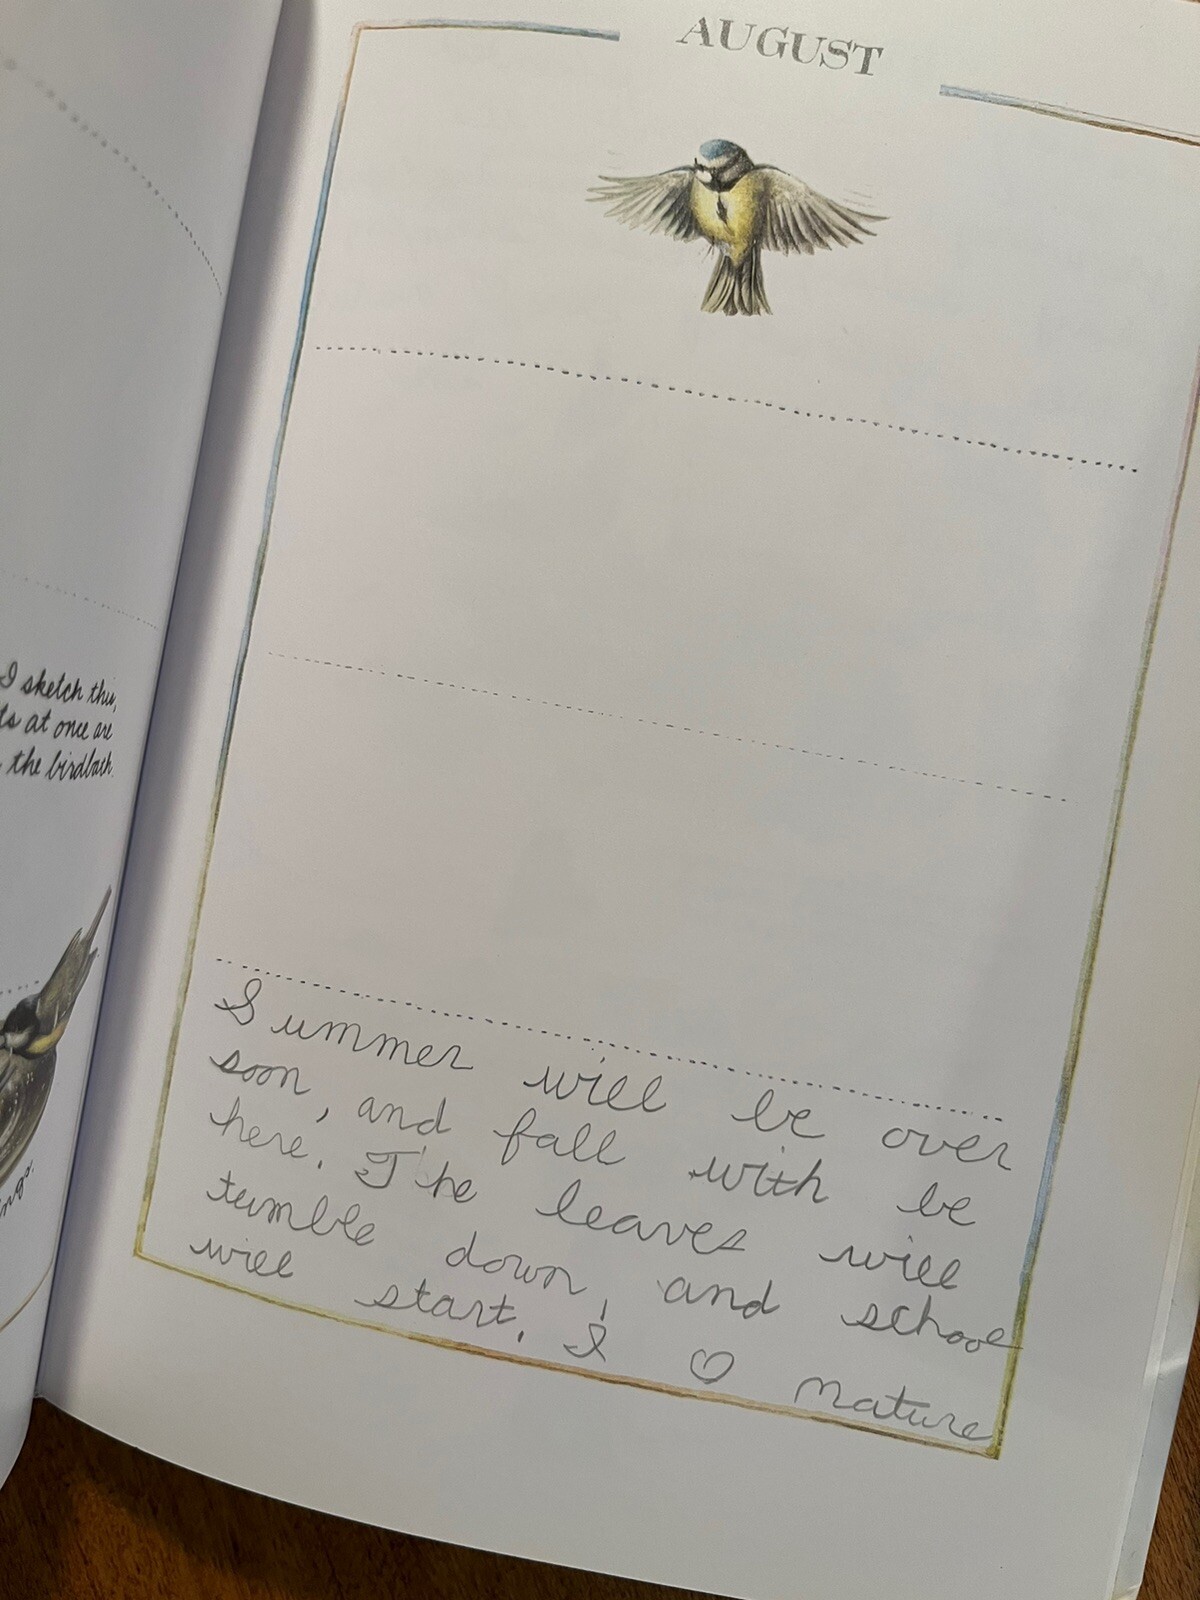 AUGUST
I sketch this,
ts at once are
the birdbath.
ngs.
Summer will be over
soon, and fall with be
here. The leaves will
tumble down, and school
will start. I ♡ nature